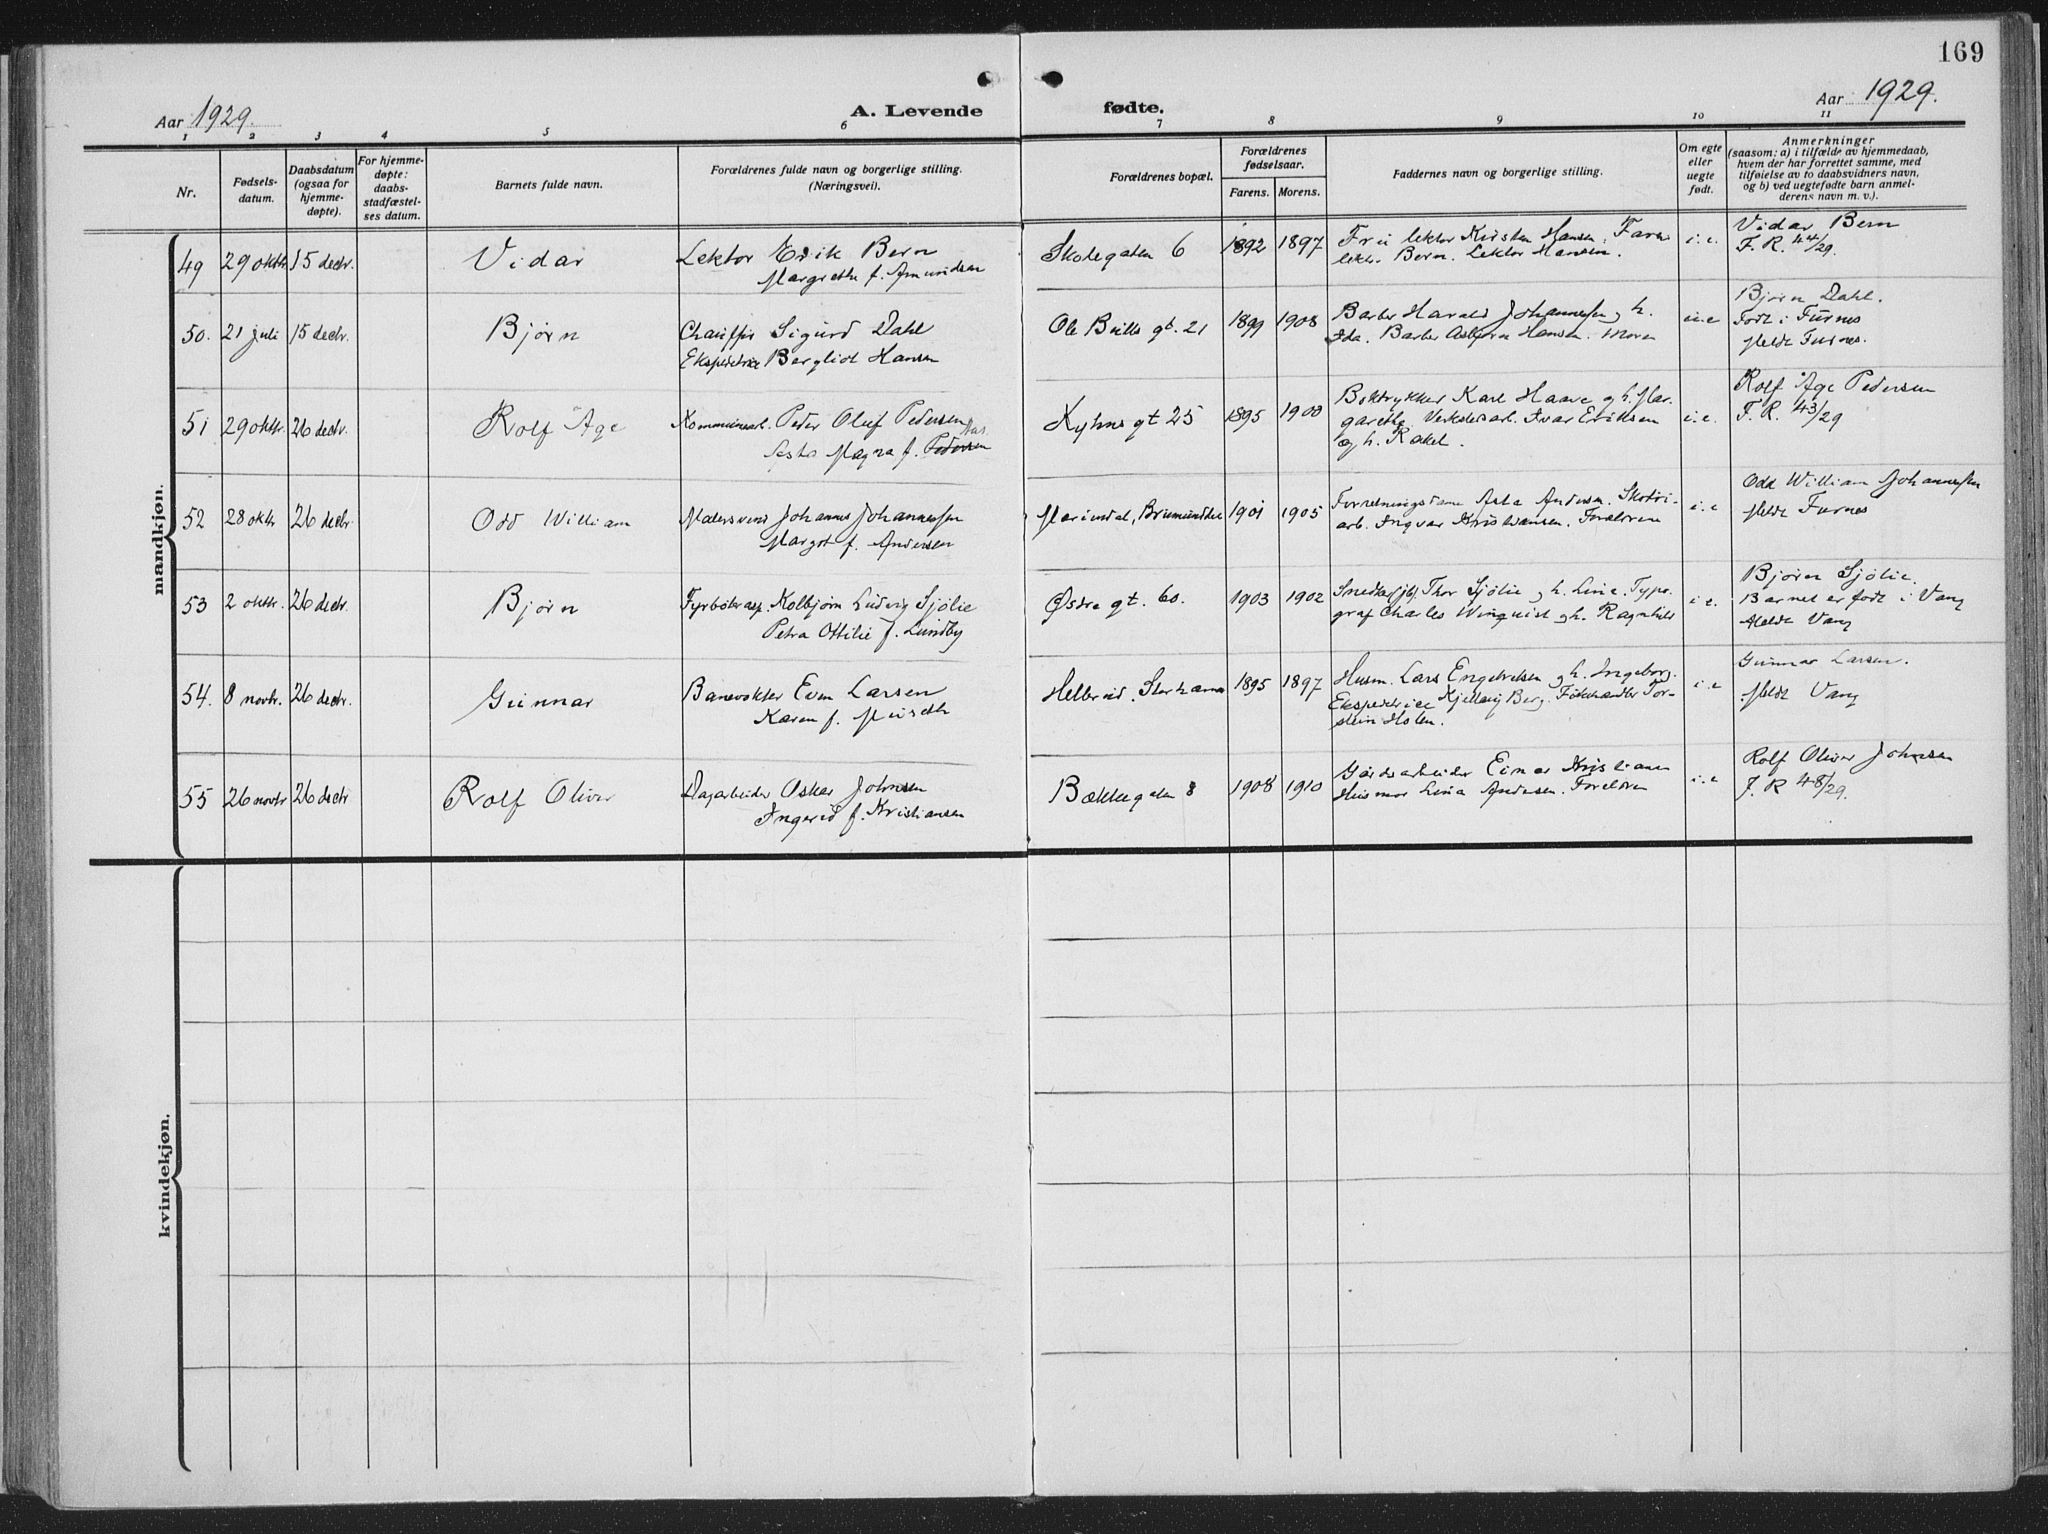 169
Aar 1929.
A. Levende fødte.
Aar 1929.
1 2 3 4 5 6 7 8 9 10 11
Nr.
Fødsels-
datum.
Daabsdatum
(ogsaa for
hjemme-
døpte).
For hjemme-
døpte:
daabs-
stadfæstel-
ses datum.
Barnets fulde navn.
Forældrenes fulde navn og borgerlige stilling.
(Næringsvei).
Forældrenes bopæl.
Forældrenes
fødselsaar.
Farens. Morens.
Faddernes navn og borgerlige stilling.
Om egte
eller
uegte
født.
Anmerkninger
(saasom: a) i tilfælde av hjemmedaab,
hvem der har forrettet samme, med
tilføielse av to daabsvidners navn,
og b) ved uegtefødte barn anmel-
derens navn m. v.).
mandkjøn.
49 29 oktr. 15 decbr. Vidar
Lektor Erik Bern
Margrethe f. Amundsen
Skolegaten 6 1892 1897
Fru lektor Kirsten Hansen, Faren
lektr. Bern. Lektor Hansen.
i. e.
Vidar Bern
F. R. 44/29.
50. 21 juli 15 decbr. Bjørn
Chauffør Sigurd Dahl
Ekspeditrice Bergliot Hansen
Ole Bulls gt. 21 1899 1908
Barber Harald Johannessen og h.
Ida. Barber Asbjørn Hansen. Moren
u. e
Bjørn Dahl.
Født i Furnes
Meldt Furnes.
51 29 oktr. 26 decbr. Rolf Åge
Kommunearb. Peder Oluf Pedersen
Magna f. Pedersen
Kyhns gt 25 1895 1900
Boktrykker Karl Haave og h. Mar-
garethe. Verkstedarb. Ivar Eriksen
og h. Rakel.
i. e.
Rolf Åge Pedersen
F. R. 43/29
52 28 oktr 26 decbr. Odd William
Malersvend Johannes Johannessen
Margot f. Andersen
Mariendal, Brumunddal 1901 1905
Forretningsdame Asta Andersen. Skotøi-
arb. Ingvar Kristiansen. Foreldrene
i. e
Odd William Johannessen
Meldt Furnes
53 2 oktr. 26 decbr. Bjørn
Fyrbøterasp. Kolbjørn Ludvig Sjølie
Petra Ottilie f. Lundby
Østre gt. 60. 1903 1902
Snedker Thor Sjølie og h. Lina. Typo-
graf Charles Winquist og h. Ragnhild
i. e.
Bjørn Sjølie.
Barnet er født i Vang
Meldt Vang
54. 8 novbr. 26 decbr. Gunnar
Banevokter Even Larsen
Karen f. Museth
Helbred. Storhamar 1895 1897
Husm. Lars Engebretsen og h. Ingeborg.
Ekspeditrice Kjellaug Berg. Fiskehandler Tor-
stein Holen.
i. e
Gunnar Larsen.
Meldt Vang
55 26 novbr 26 decbr Rolf Oliver
Dagarbeider Oskar Johnsen
Ingerid f. Kristiansen
Bækkegaten 8 1908 1910
Gårdsarbeider Einar Kristiansen
Husmor Lina Andersen. Foreldrene
i. e
Rolf Oliver Johnsen
F. R 48/29.
kvindekjøn.